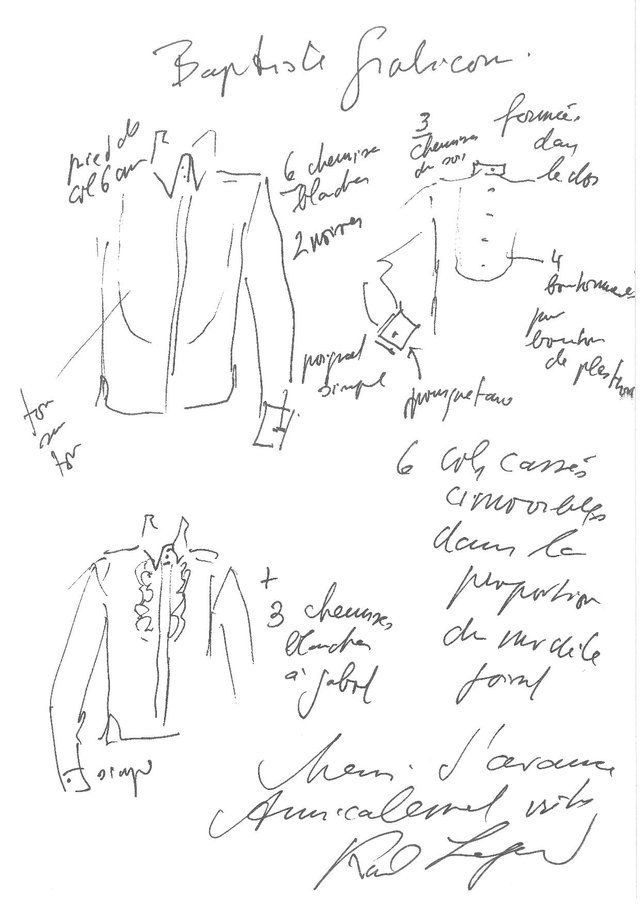 Baptiste Giabiconi.
pied de
col 6 cm
6 chemises
blanches
2 noires
3
chemises
du soir
fermées
dans
le dos
4
boutonnières
pour
boutons
de plastron
poignet
simple
mousquetaire
ton
sur
ton
6 cols cassés
amovibles
dans la
proportion
du modèle
+
3 chemises
blanches
à jabot
simple
Merci d'avance
Amicalement votre
Karl Lagerfeld